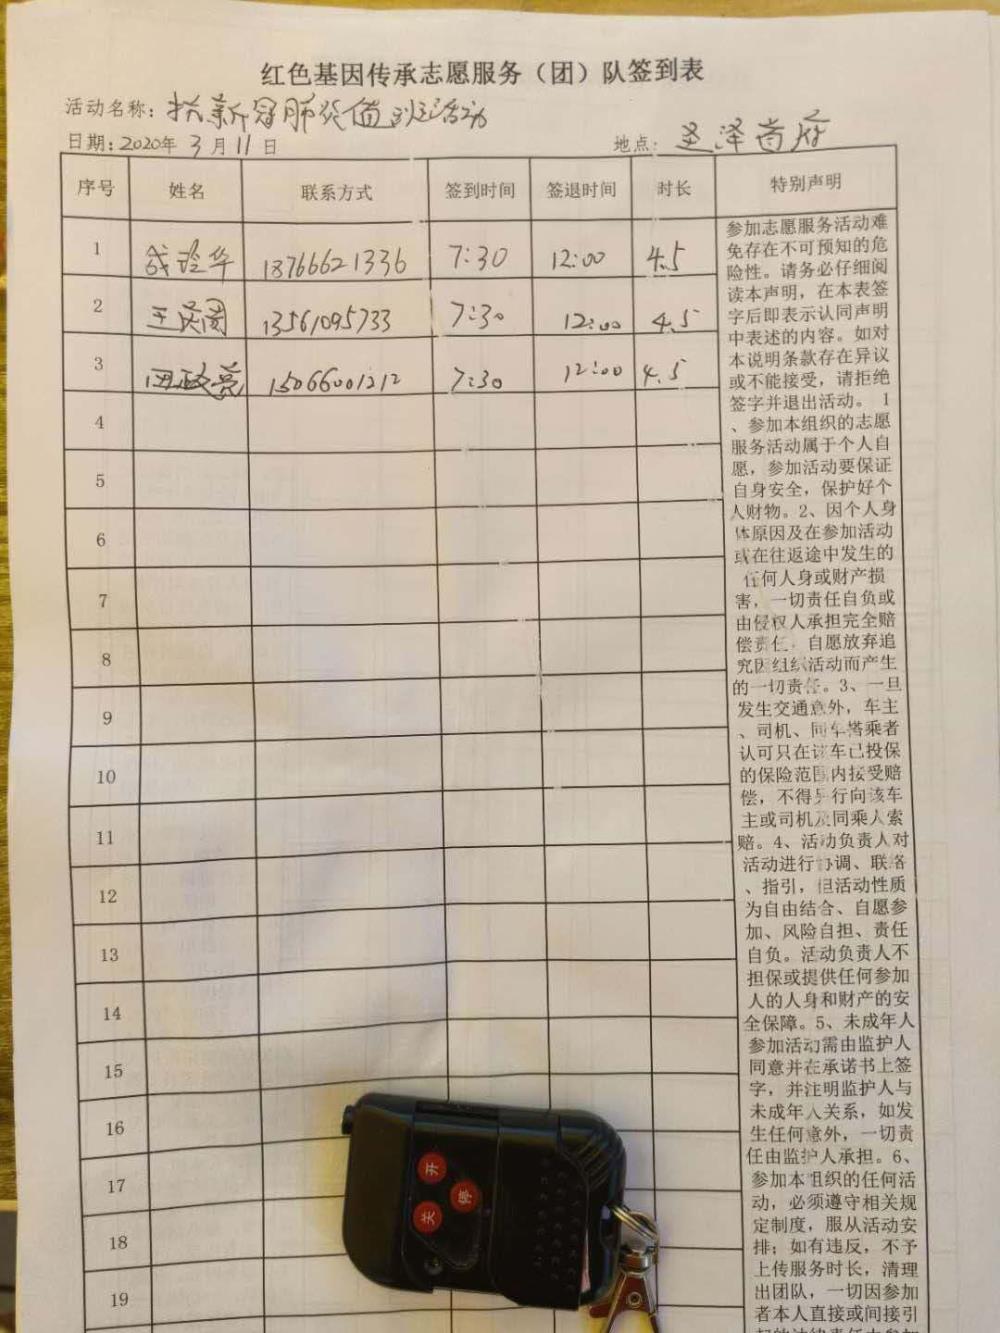 红色基因传承志愿服务（团）队签到表
活动名称：抗新冠肺炎值班活动
日期：2020年3月11日 地点：圣泽首府
序号 姓名 联系方式 签到时间 签退时间 时长 特别声明
1 18766621336 7:30 12:00 4.5
2 13561095733 7:30 12:00 4.5
3 田政亮 15066001212 7:30 12:00 4.5
4
5
6
7
8
9
10
11
12
13
14
15
16
17
18
19
参加志愿服务活动难
免存在不可预知的危
险性。请务必仔细阅
读本声明，在本表签
字后即表示认同声明
中表述的内容。如对
本说明条款存在异议
或不能接受，请拒绝
签字并退出活动。 1
、参加本组织的志愿
服务活动属于个人自
愿，参加活动要保证
自身安全，保护好个
人财物。2、因个人身
体原因及在参加活动
或在往返途中发生的
任何人身或财产损
害，一切责任自负或
由侵权人承担完全赔
偿责任，自愿放弃追
究因组织活动而产生
的一切责任。3、一旦
发生交通意外，车主
、司机、同车搭乘者
认可只在该车已投保
的保险范围内接受赔
偿，不得另行向该车
主或司机及同乘人索
赔。4、活动负责人对
活动进行协调、联络
、指引，但活动性质
为自由结合、自愿参
加、风险自担、责任
自负。活动负责人不
担保或提供任何参加
人的人身和财产的安
全保障。5、未成年人
参加活动需由监护人
同意并在承诺书上签
字，并注明监护人与
未成年人关系，如发
生任何意外，一切责
任由监护人承担。6、
参加本组织的任何活
动，必须遵守相关规
定制度，服从活动安
排；如有违反，不予
上传服务时长，清理
出团队，一切因参加
者本人直接或间接引
开
停
关